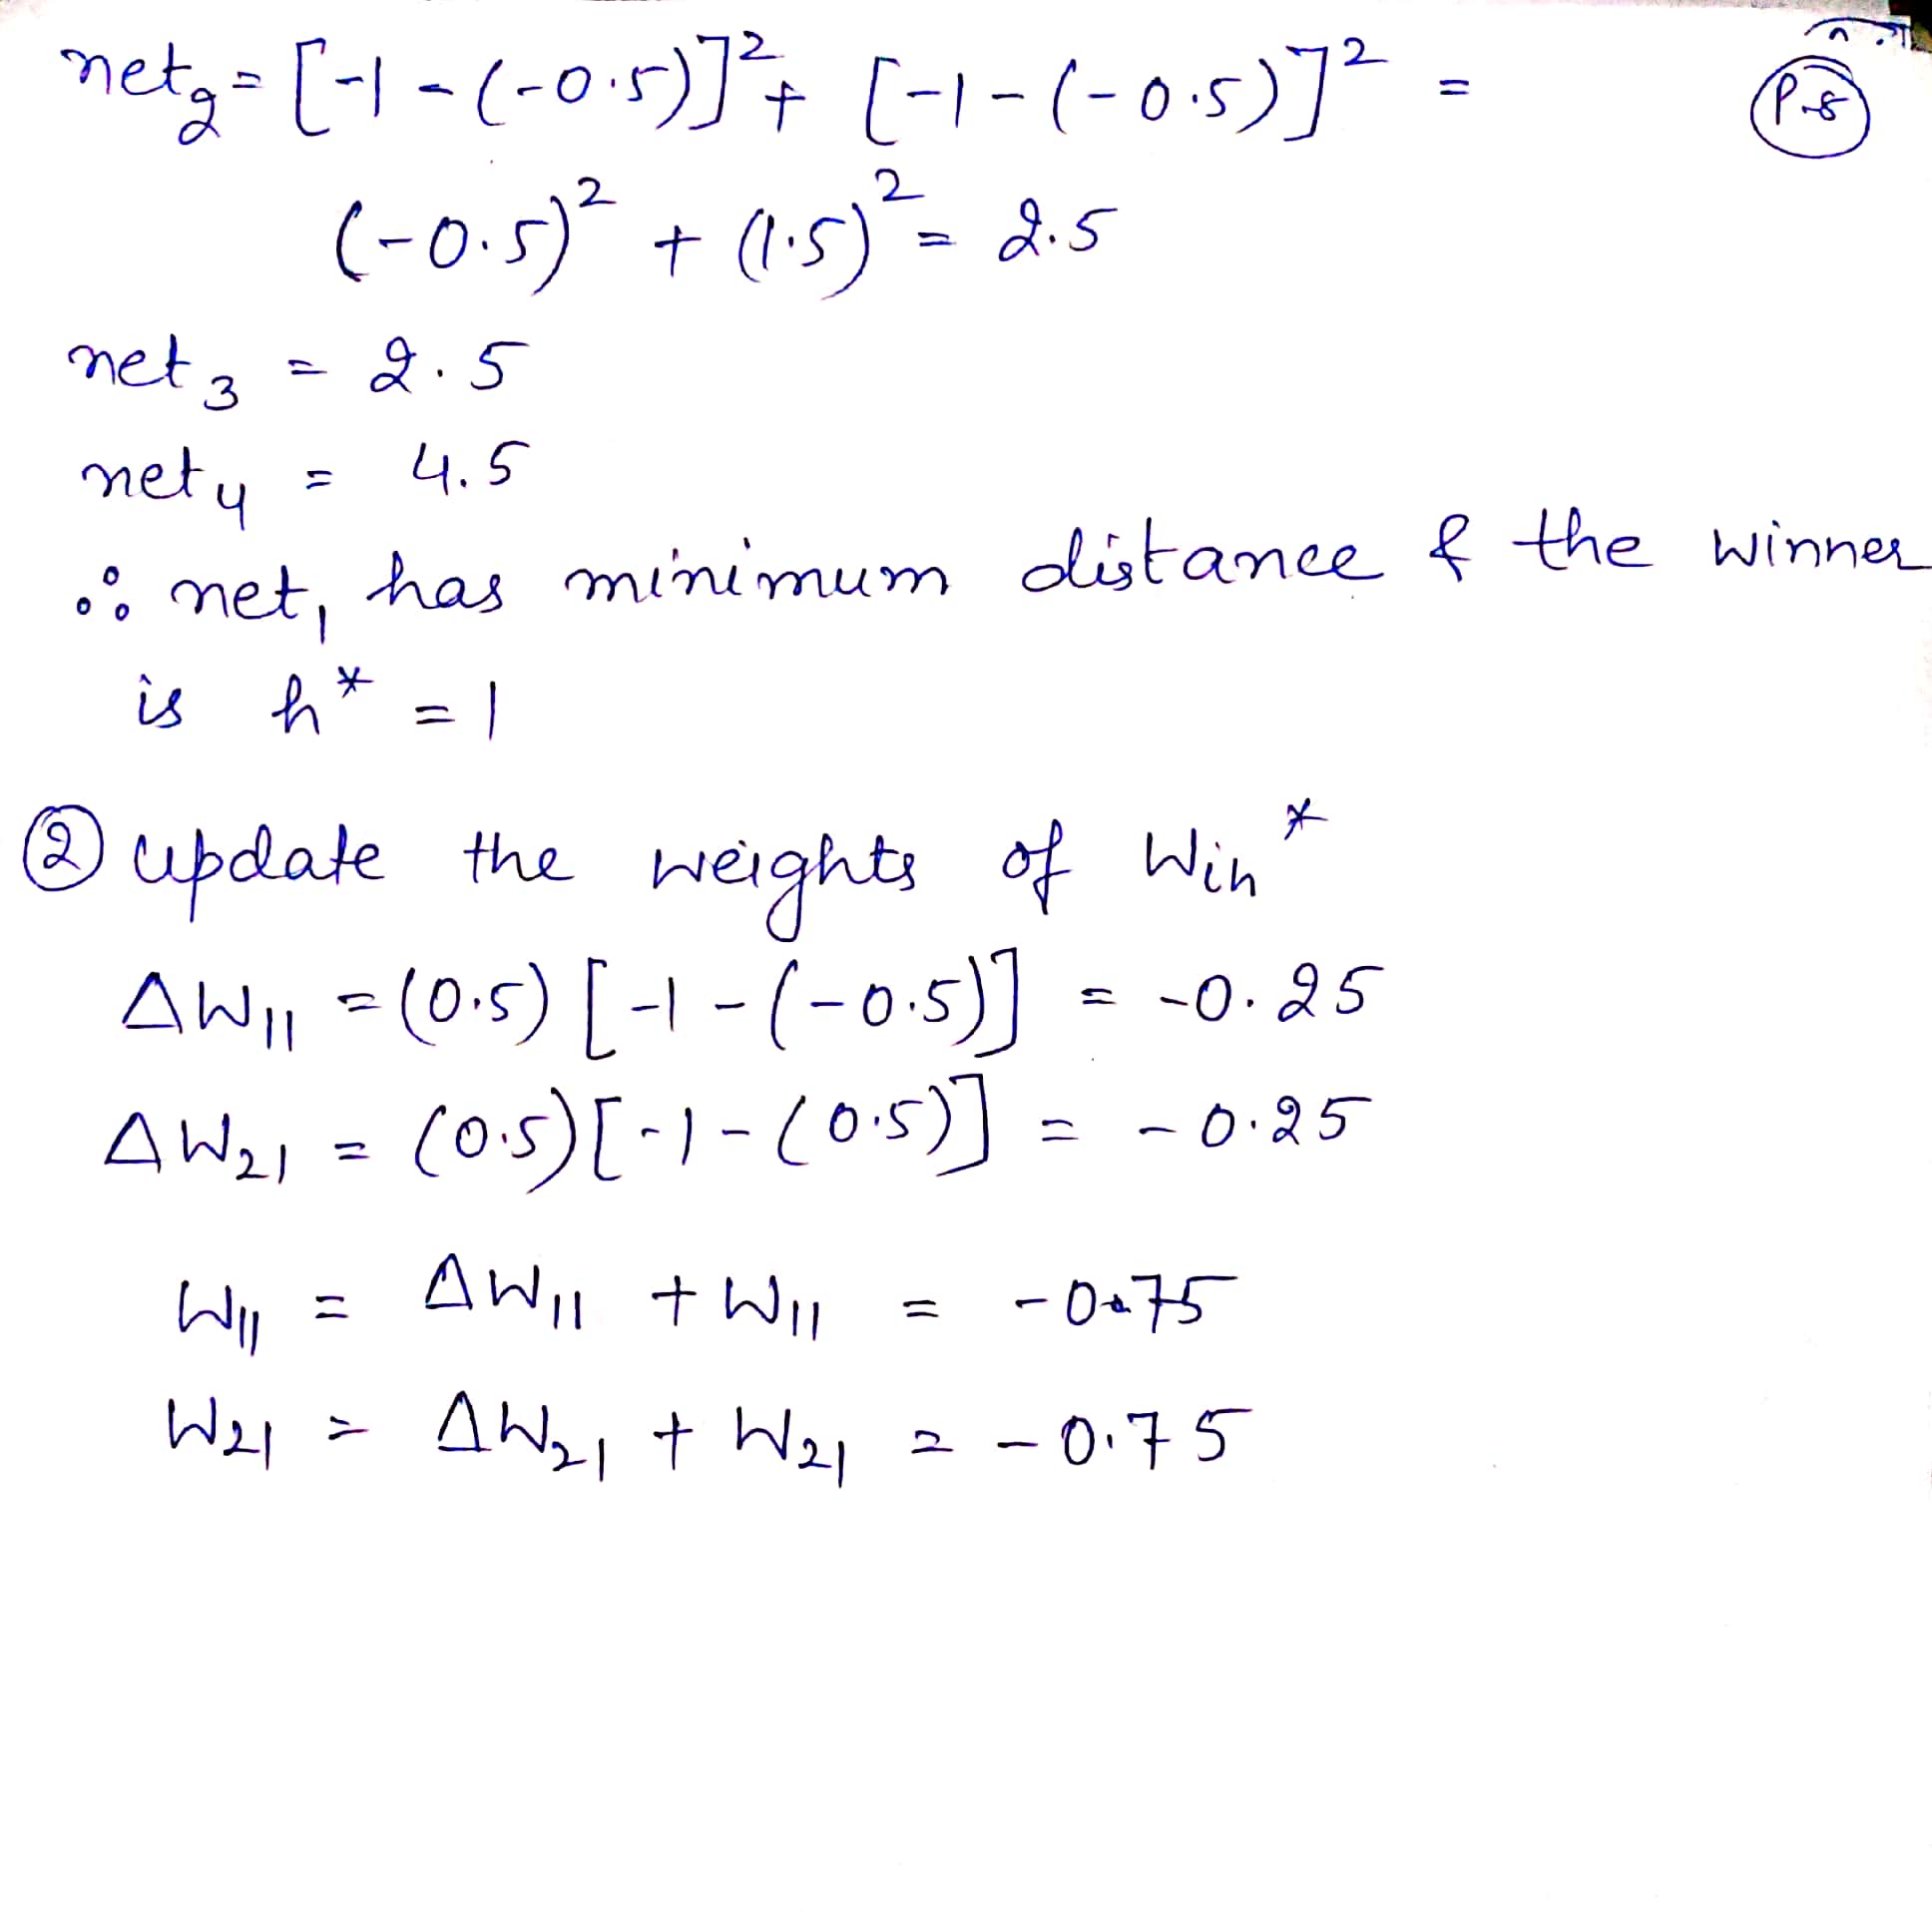 net₂ = [-1 - (-0.5)]² + [-1 - (-0.5)]² =
P-8
(-0.5)² + (1.5)² = 2.5
net₃ = 2.5
net₄ = 4.5
∴ net₁ has minimum distance & the winner
is h* = 1
② Update the weights of Wih*
ΔW₁₁ = (0.5) [-1 - (-0.5)] = -0.25
ΔW₂₁ = (0.5) [-1 - (0.5)] = -0.25
W₁₁ = ΔW₁₁ + W₁₁ = -0.75
W₂₁ = ΔW₂₁ + W₂₁ = -0.75